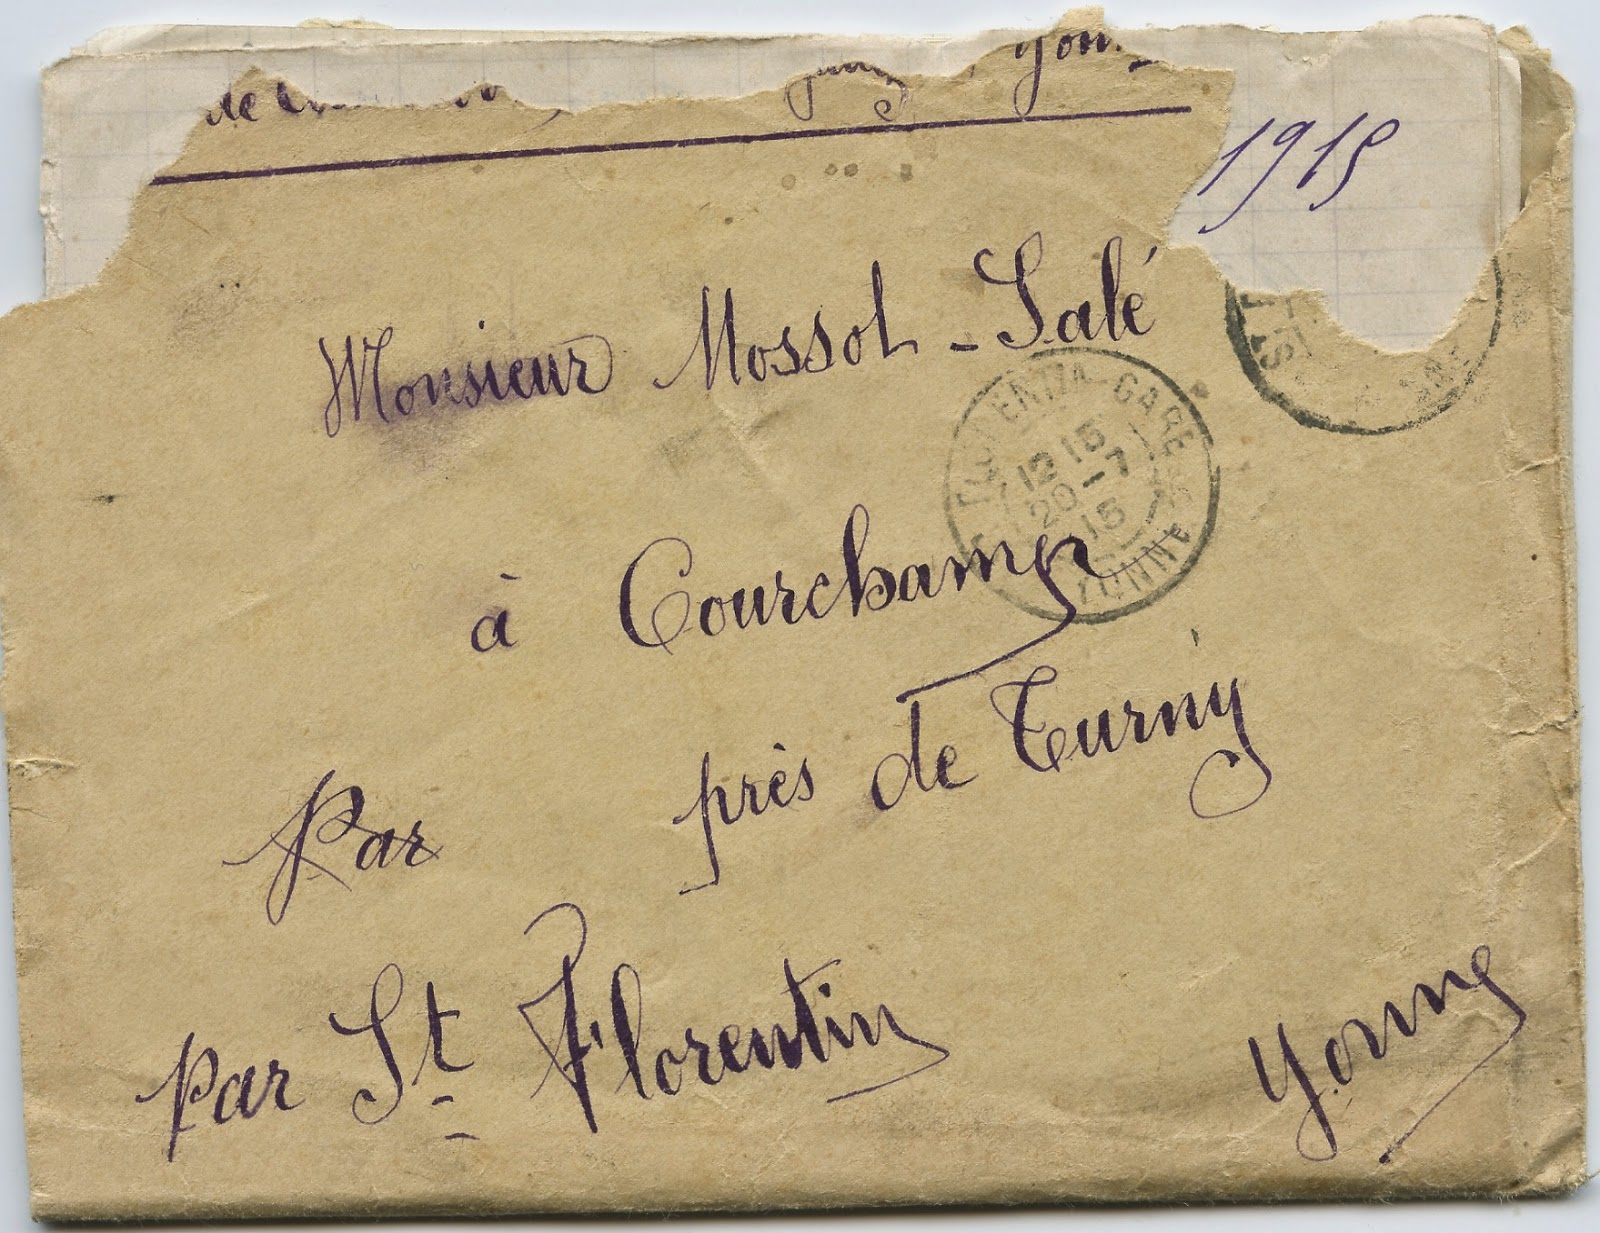 de
Yon.
1915
Monsieur Mossot-Salé
à Courchamp
près de Turny
Par
par St Florentin
Yonne
GARE
12 15
20-7
15
YONNE
ST